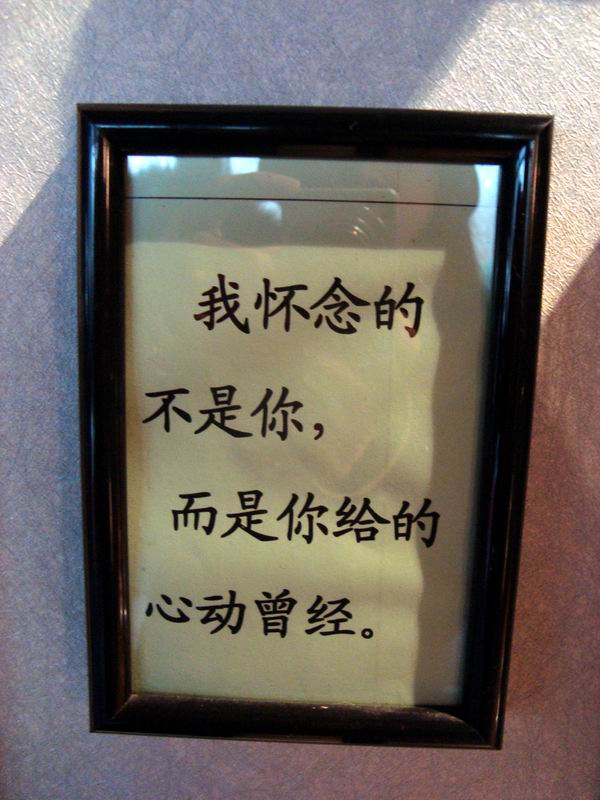 我怀念的
不是你，
而是你给的
心动曾经。